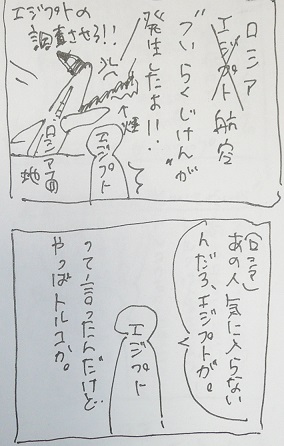 ロシア
エジプト航空
"ついらくじけん"が
発生したよ!!
エジプトの
調査させろ!!
煙
エジプト
ロシア
地
(ロシア)
あの人気に入らない
んだろ、エジプトが。
エジプト
って言ったんだけど…
やっぱトルコか。